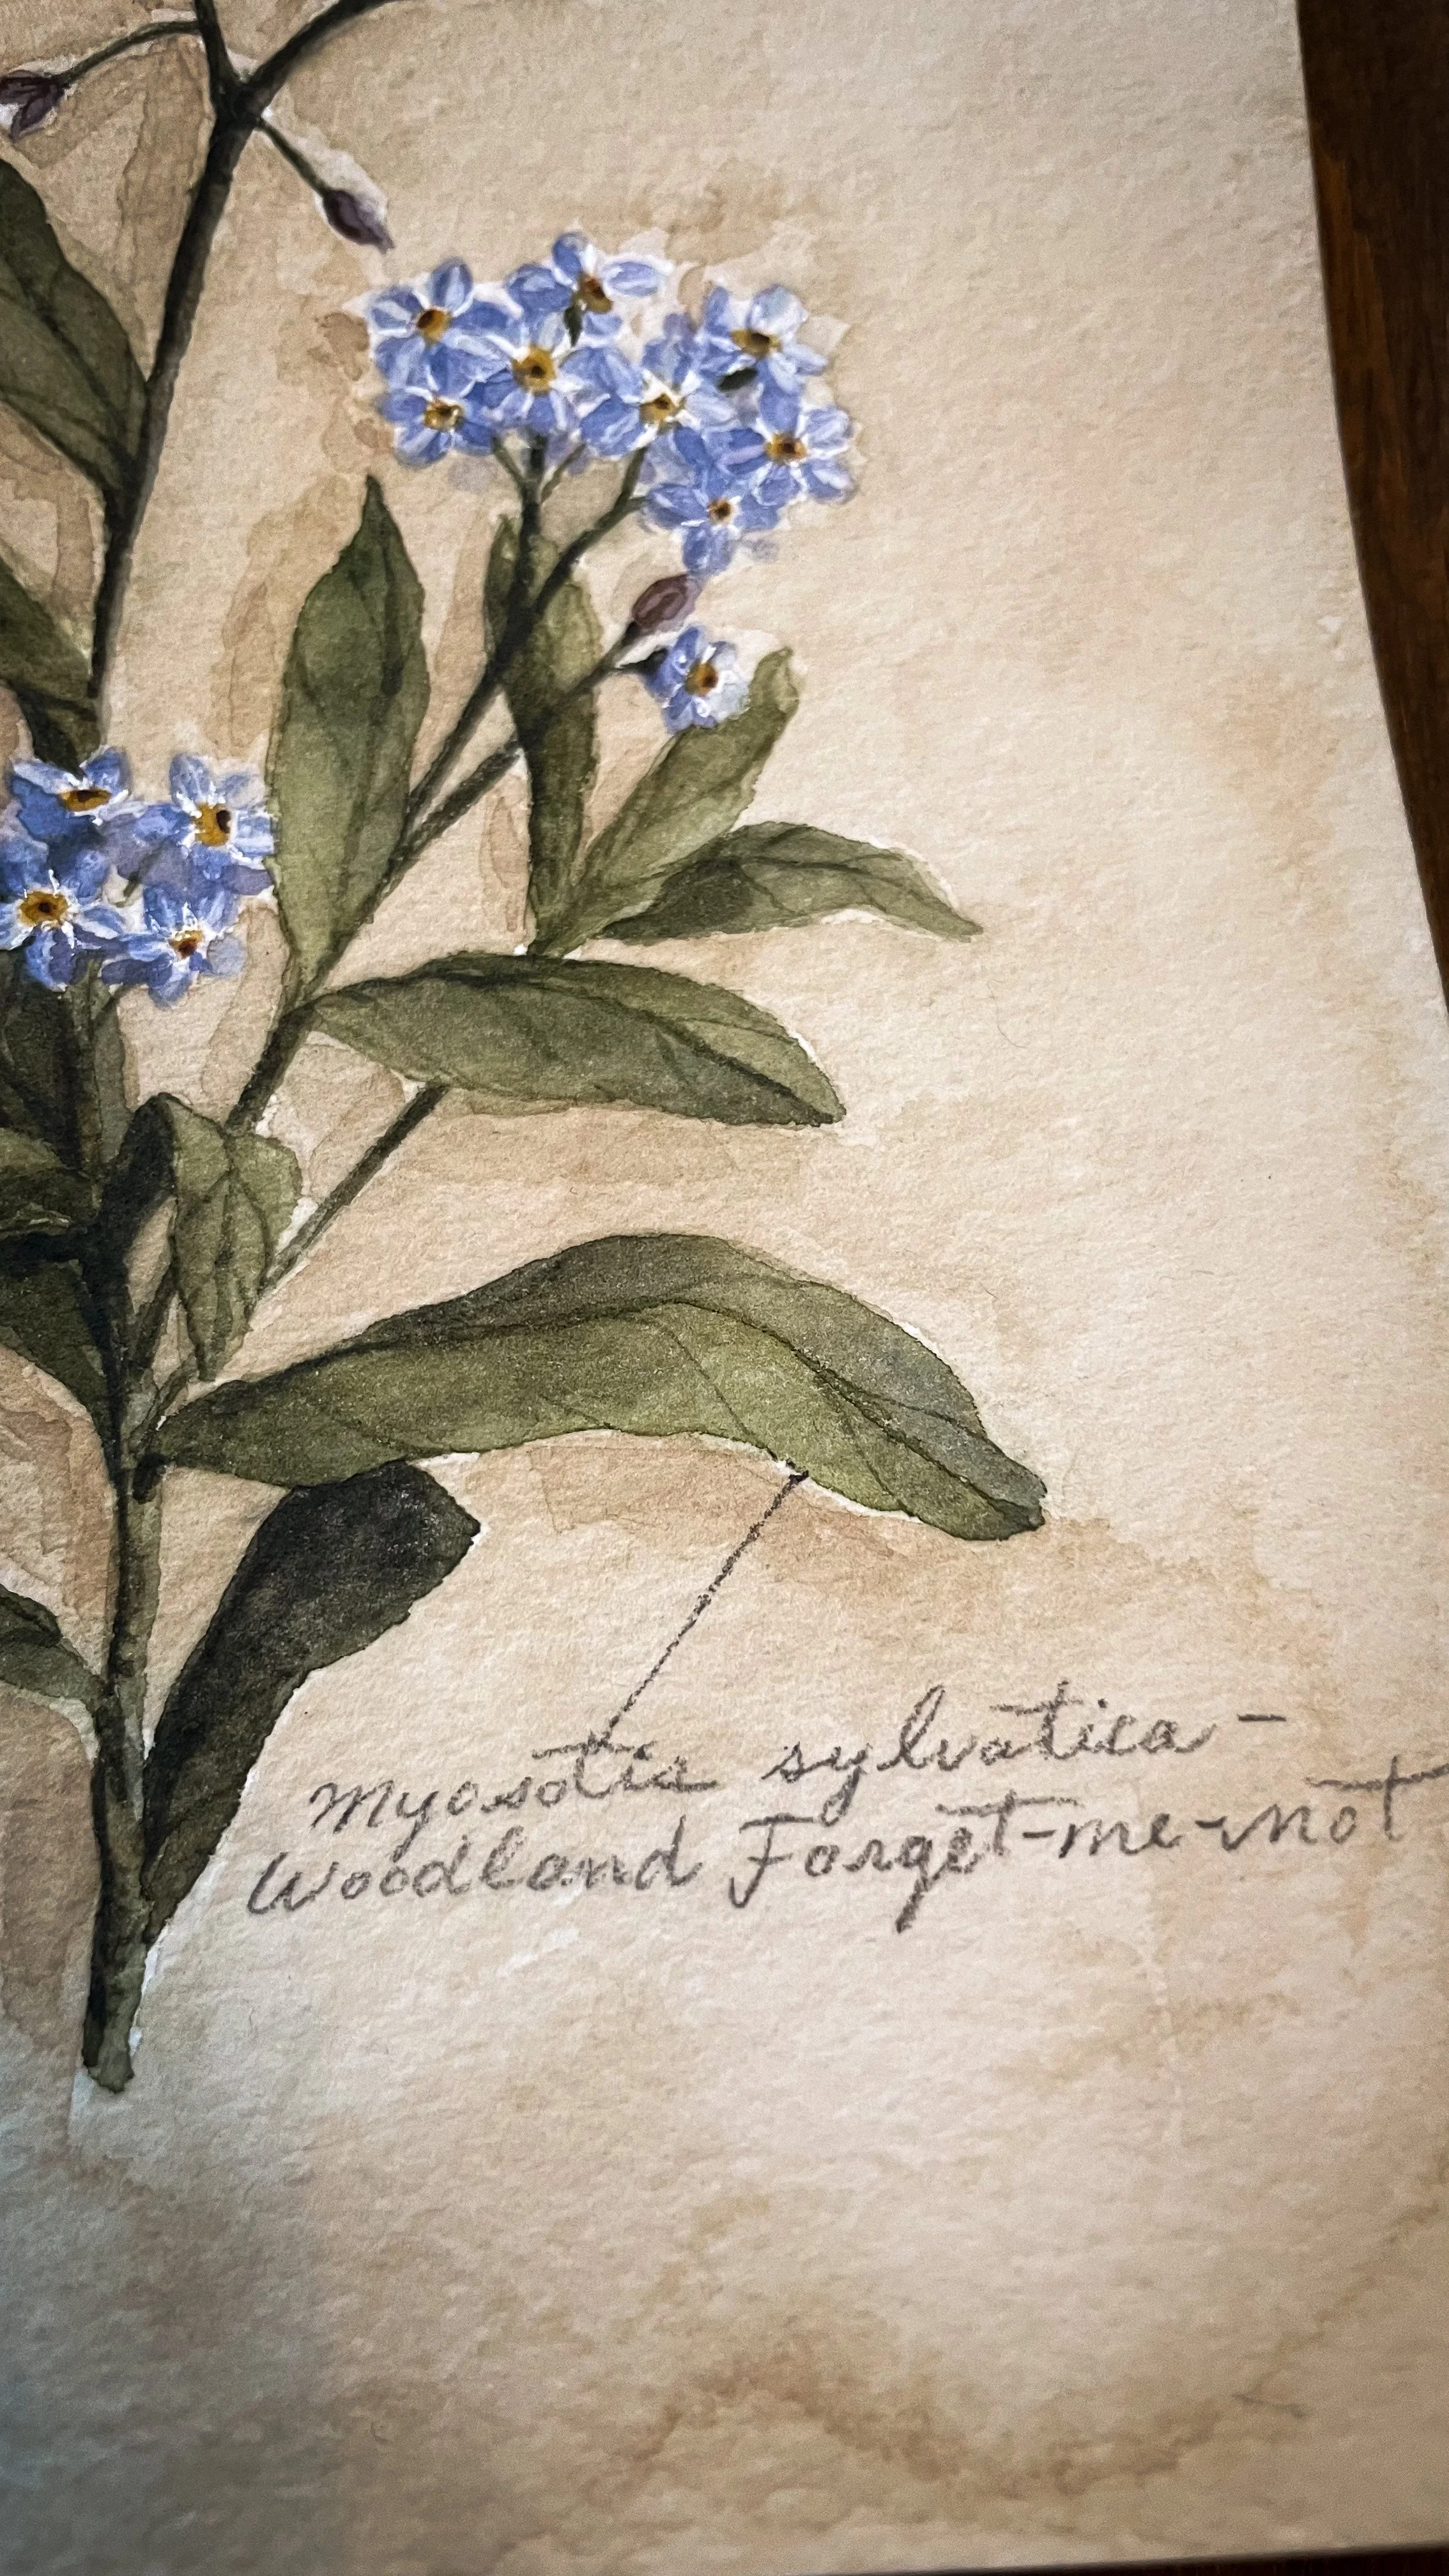 Myosotis sylvatica -
Woodland Forget-me-not